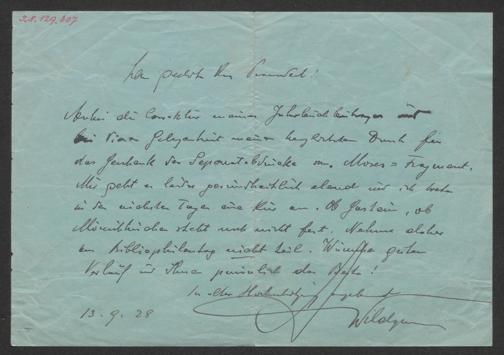 28.129.807
Sehr geehrter Herr
Anbei die Korrektur meines Jahrbuchbeitrages und
bei dieser Gelegenheit meinen herzlichsten Dank für
das Geschenk der Separatabdrücke von Moses = Fragment.
Mir geht es leider gesundheitlich elend und ich trete
in den nächsten Tagen eine Kur an. Ob Gastein, ob
steht noch nicht fest. Nehme daher
am Bibliophilentag nicht teil. Wünsche guten
Verlauf und Ihnen persönlich das Beste!
In alter Hochschätzung ergebenst
13.9.28
Wildgans